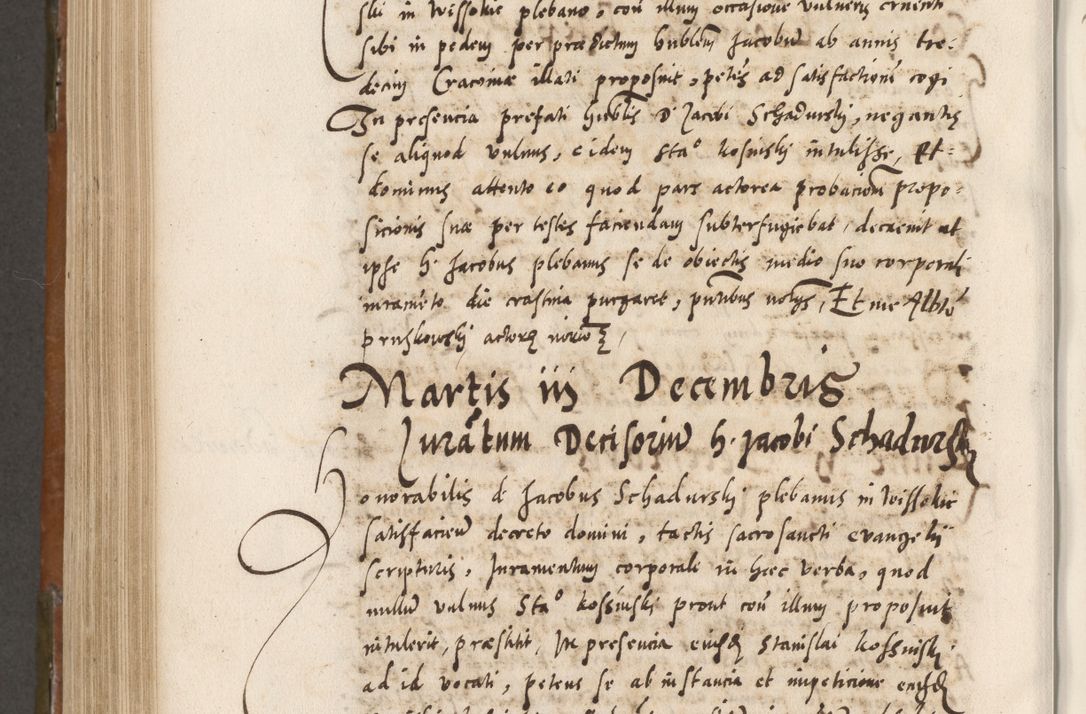 ski in Wissokie plebano, coñ illum occasione vulneris cruenti
sibi in pedem per prædictum hnblem Jacobũ ab annis tre-
decim Cracoviæ illati proposuit, petẽs ad satisfactionẽ cogi
In presencia prefati hnblis D Jacobi Schadurskj, negantis
se aliquod vulnus, eidem Staº kosinskj intulisse, Et
dominus attento eo quod pars actorea probacionẽ propo-
sicionis suæ per testes faciendam subterfugiebat, decrevit ut
ipse h. Jacobus plebanus se de obiectis medio suo corporali
iuramẽto die crastina purgaret, pñtibus notijs, Et me Albtõ
pruskowskj actorq̃
Martis iij Decembris
Jurãtum Decisoriũ h. jacobi Schadurskj
Honorabilis d Jacobus Schadurskj plebanus in Wissokie
satisfacieñ decreto domini, tactis sacrosancti evangelij
scripturis, Juramentum corporale in hæc verba, quod
nullũ vulnus Staº kossinskj prout coñ illum proposuit
intulerit, præstitit, In presencia eiusd̃ Stanislai kossinskj
ad id vocati, petens se ab instancia et impeticione eiusd̃